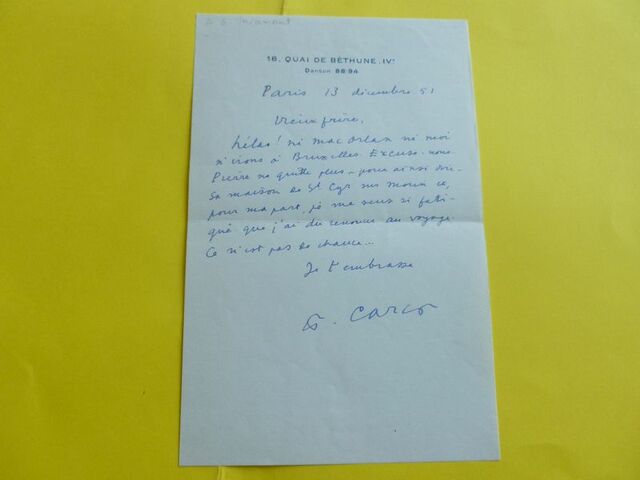 18, QUAI DE BÉTHUNE. IVᵉ
Danton 88-94
Paris 13 décembre 51
Vieux frère,
hélas! ni Mac Orlan ni moi
n'irons à Bruxelles. Excuse-nous
Pierre ne quitte plus – pour ainsi dire –
sa maison de St Cyr sur Morin et,
pour ma part, je me sens si fati-
gué que j'ai dû renoncer au voyage.
Ce n'est pas de chance...
Je t'embrasse
F. Carco